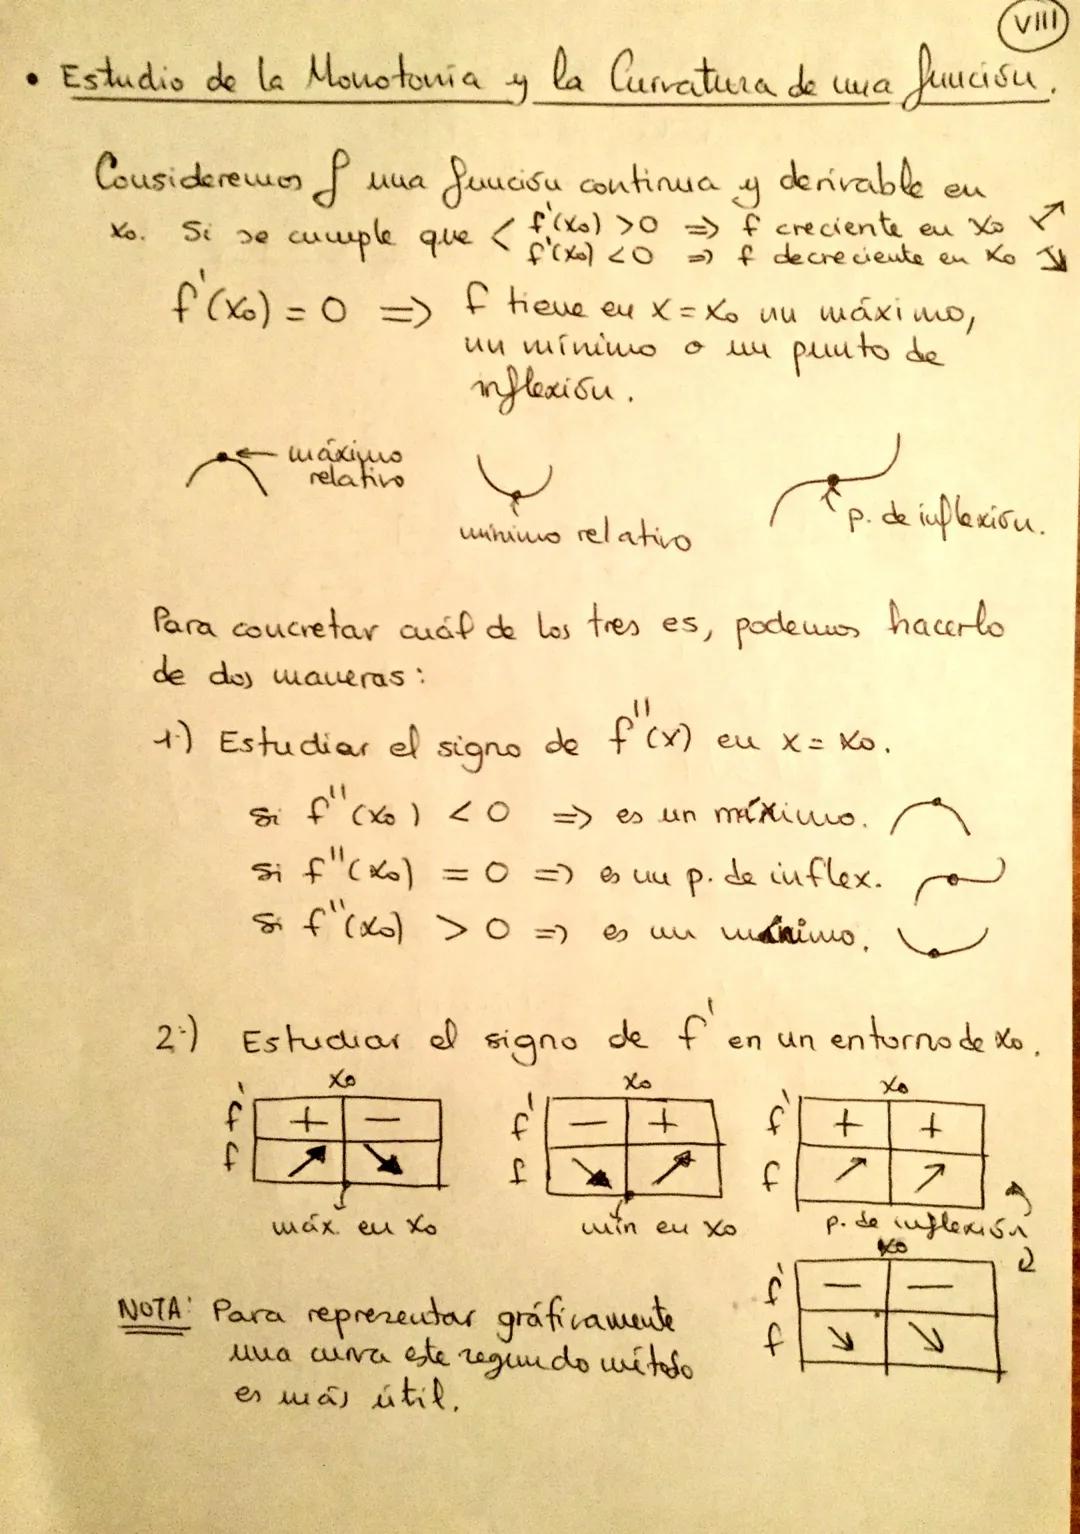 VIII
• Estudio de la Monotonía y la Curvatura de una función.
Consideremos f una función continua y derivable en
x₀. Si se cumple que < f'(x₀) > 0 ⇒ f creciente en x₀ ↗
f'(x₀) < 0 ⇒ f decreciente en x₀ ↘
f'(x₀) = 0 ⇒ f tiene en x = x₀ un máximo,
un mínimo o un punto de
inflexión.
máximo
relativo
mínimo relativo
p. de inflexión.
Para concretar cuál de los tres es, podemos hacerlo
de dos maneras:
1.) Estudiar el signo de f''(x) en x = x₀.
si f''(x₀) < 0 ⇒ es un máximo.
si f''(x₀) = 0 ⇒ es un p. de inflex.
si f''(x₀) > 0 ⇒ es un mínimo.
2.) Estudiar el signo de f' en un entorno de x₀.
x₀
f' + −
f ↗ ↘
máx. en x₀
x₀
f' − +
f ↘ ↗
mín en x₀
x₀
f' + +
f ↗ ↗
p. de inflexión
x₀
f' − −
f ↘ ↘
NOTA: Para representar gráficamente
una curva este segundo método
es más útil.